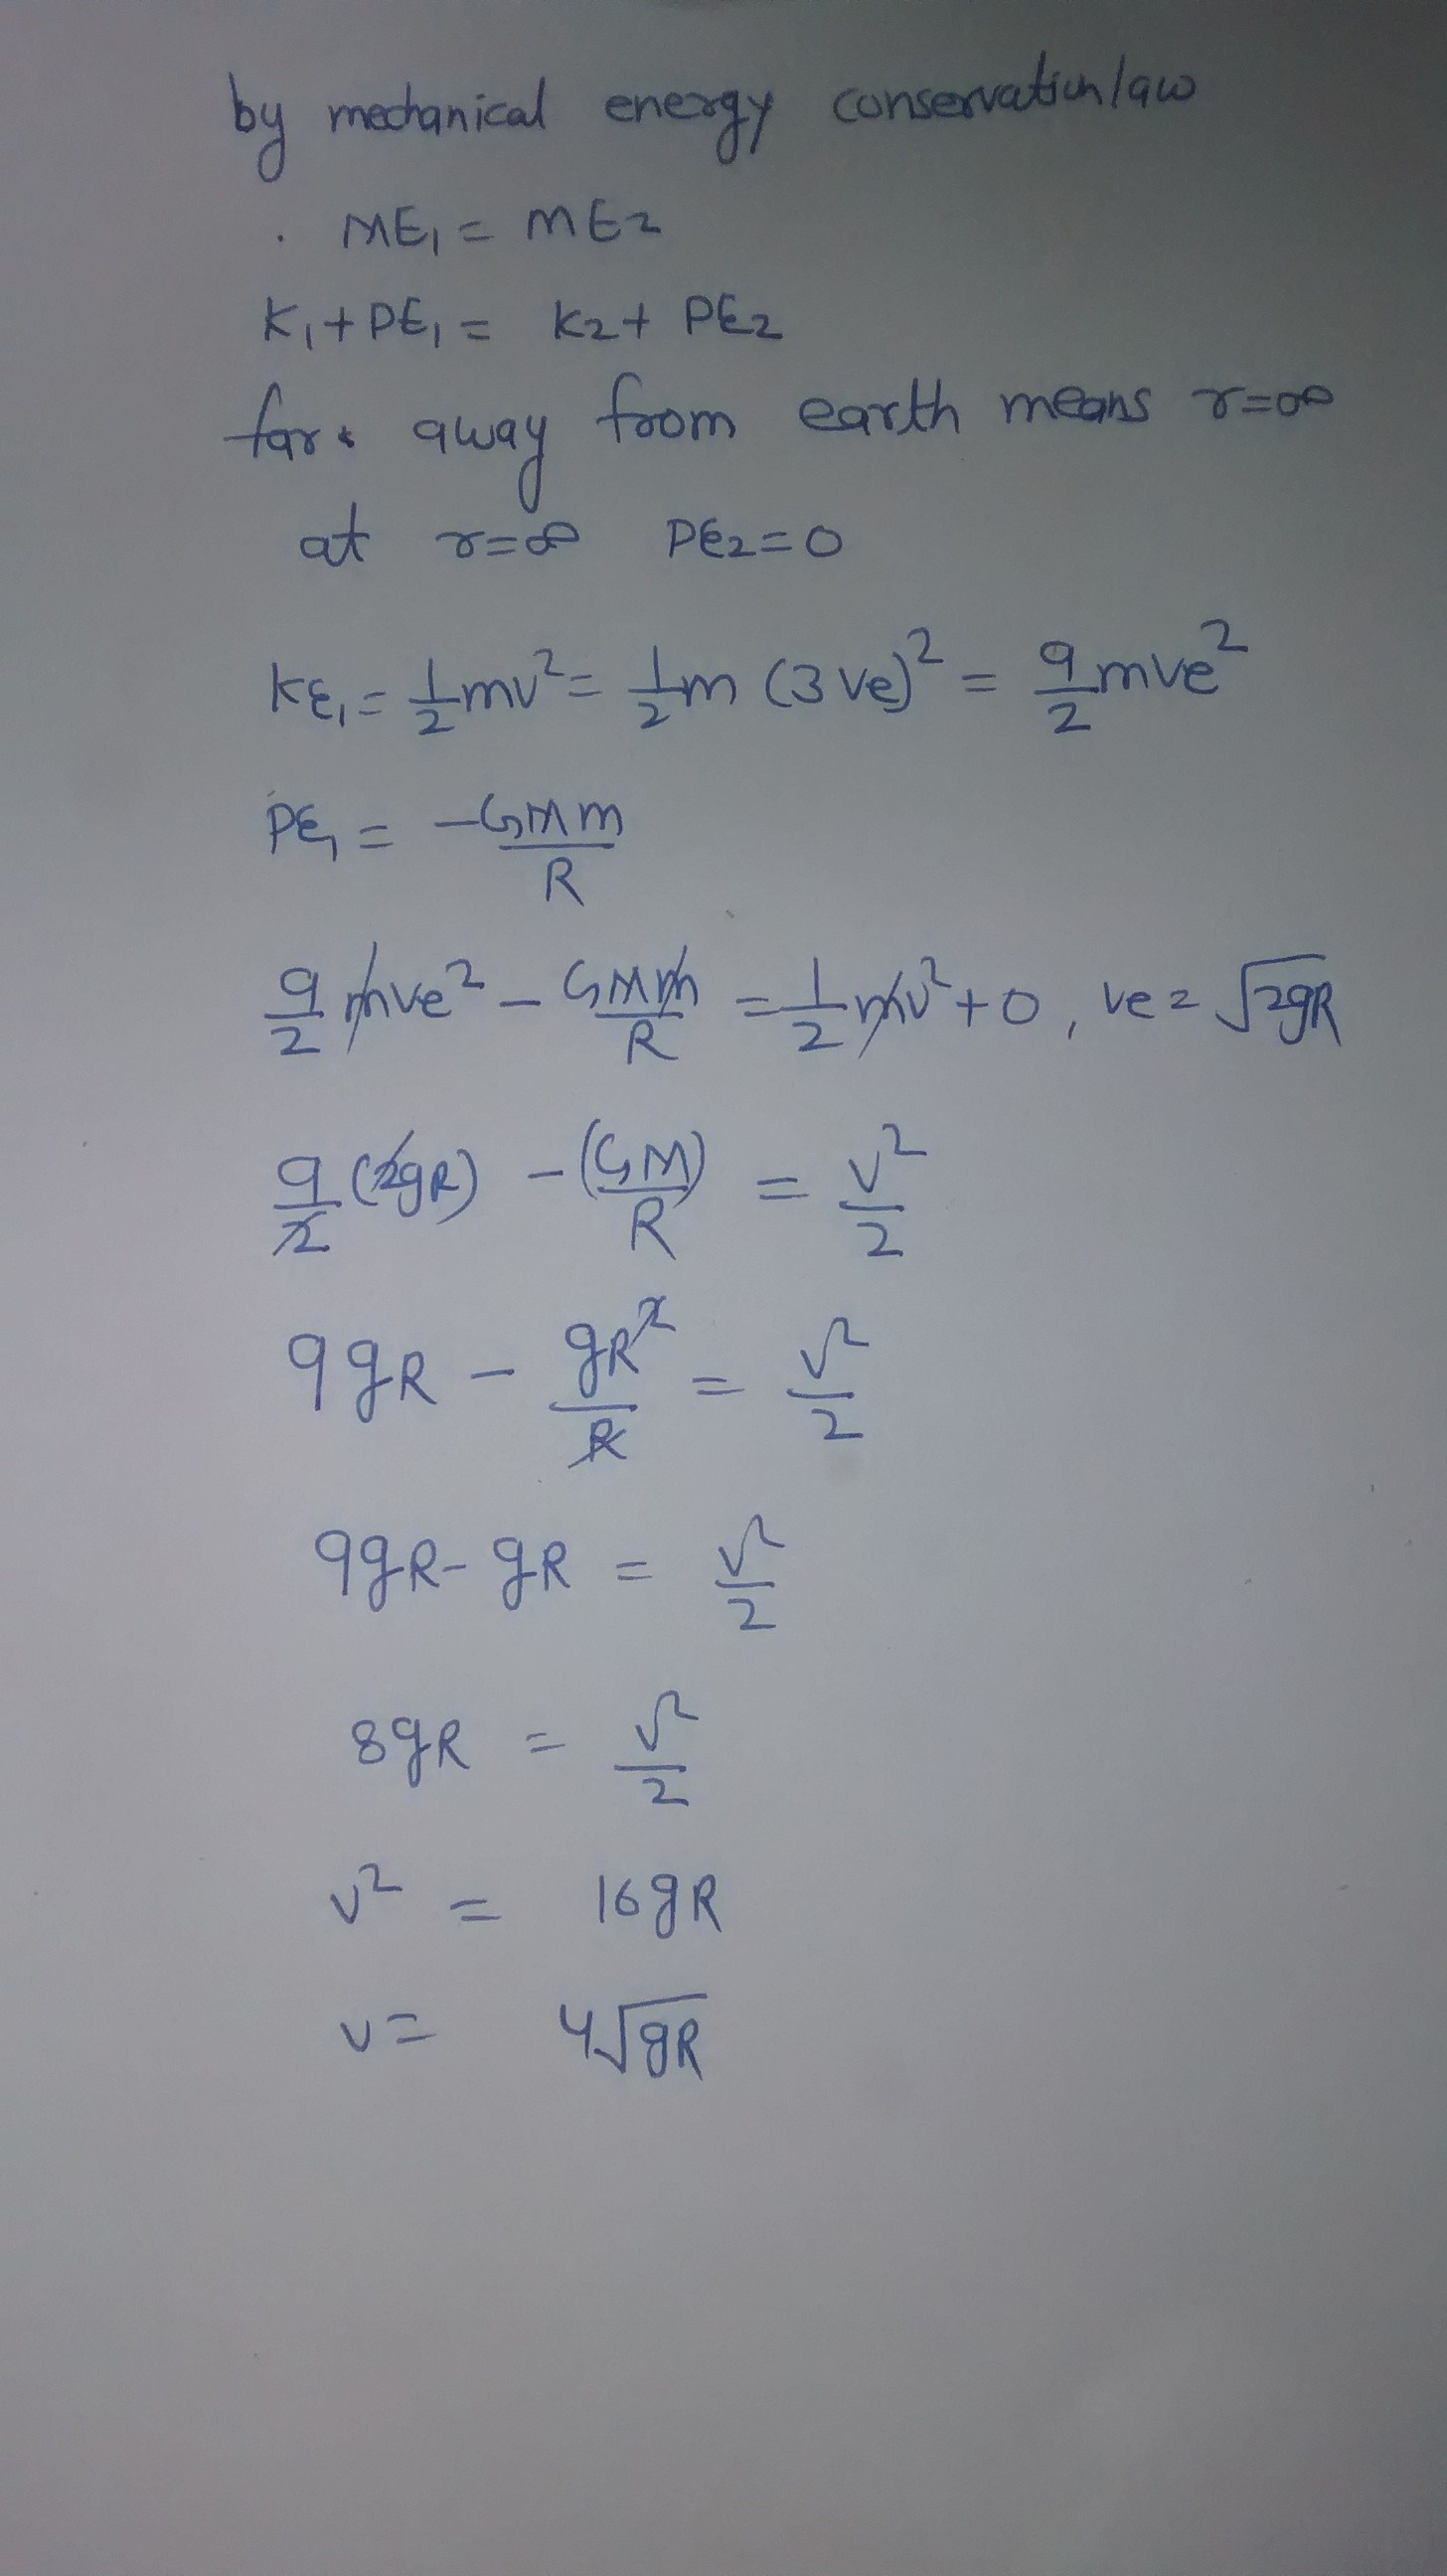 by mechanical energy conservation law
. ME₁ = ME2
K₁+PE₁ = K2+ PE2
far away from earth means r=∞
at r=∞ PE2=0
KE₁ = 1/2 mv² = 1/2 m (3ve)² = 9/2 mve²
PE₁ = -GMm/R
9/2 mve² - GMm/R = 1/2 mv² + 0, ve = √2gR
9/2 (2gR) - (GM)/R = v²/2
9gR - gR²/R = v²/2
9gR - gR = v²/2
8gR = v²/2
v² = 16gR
v = 4√gR